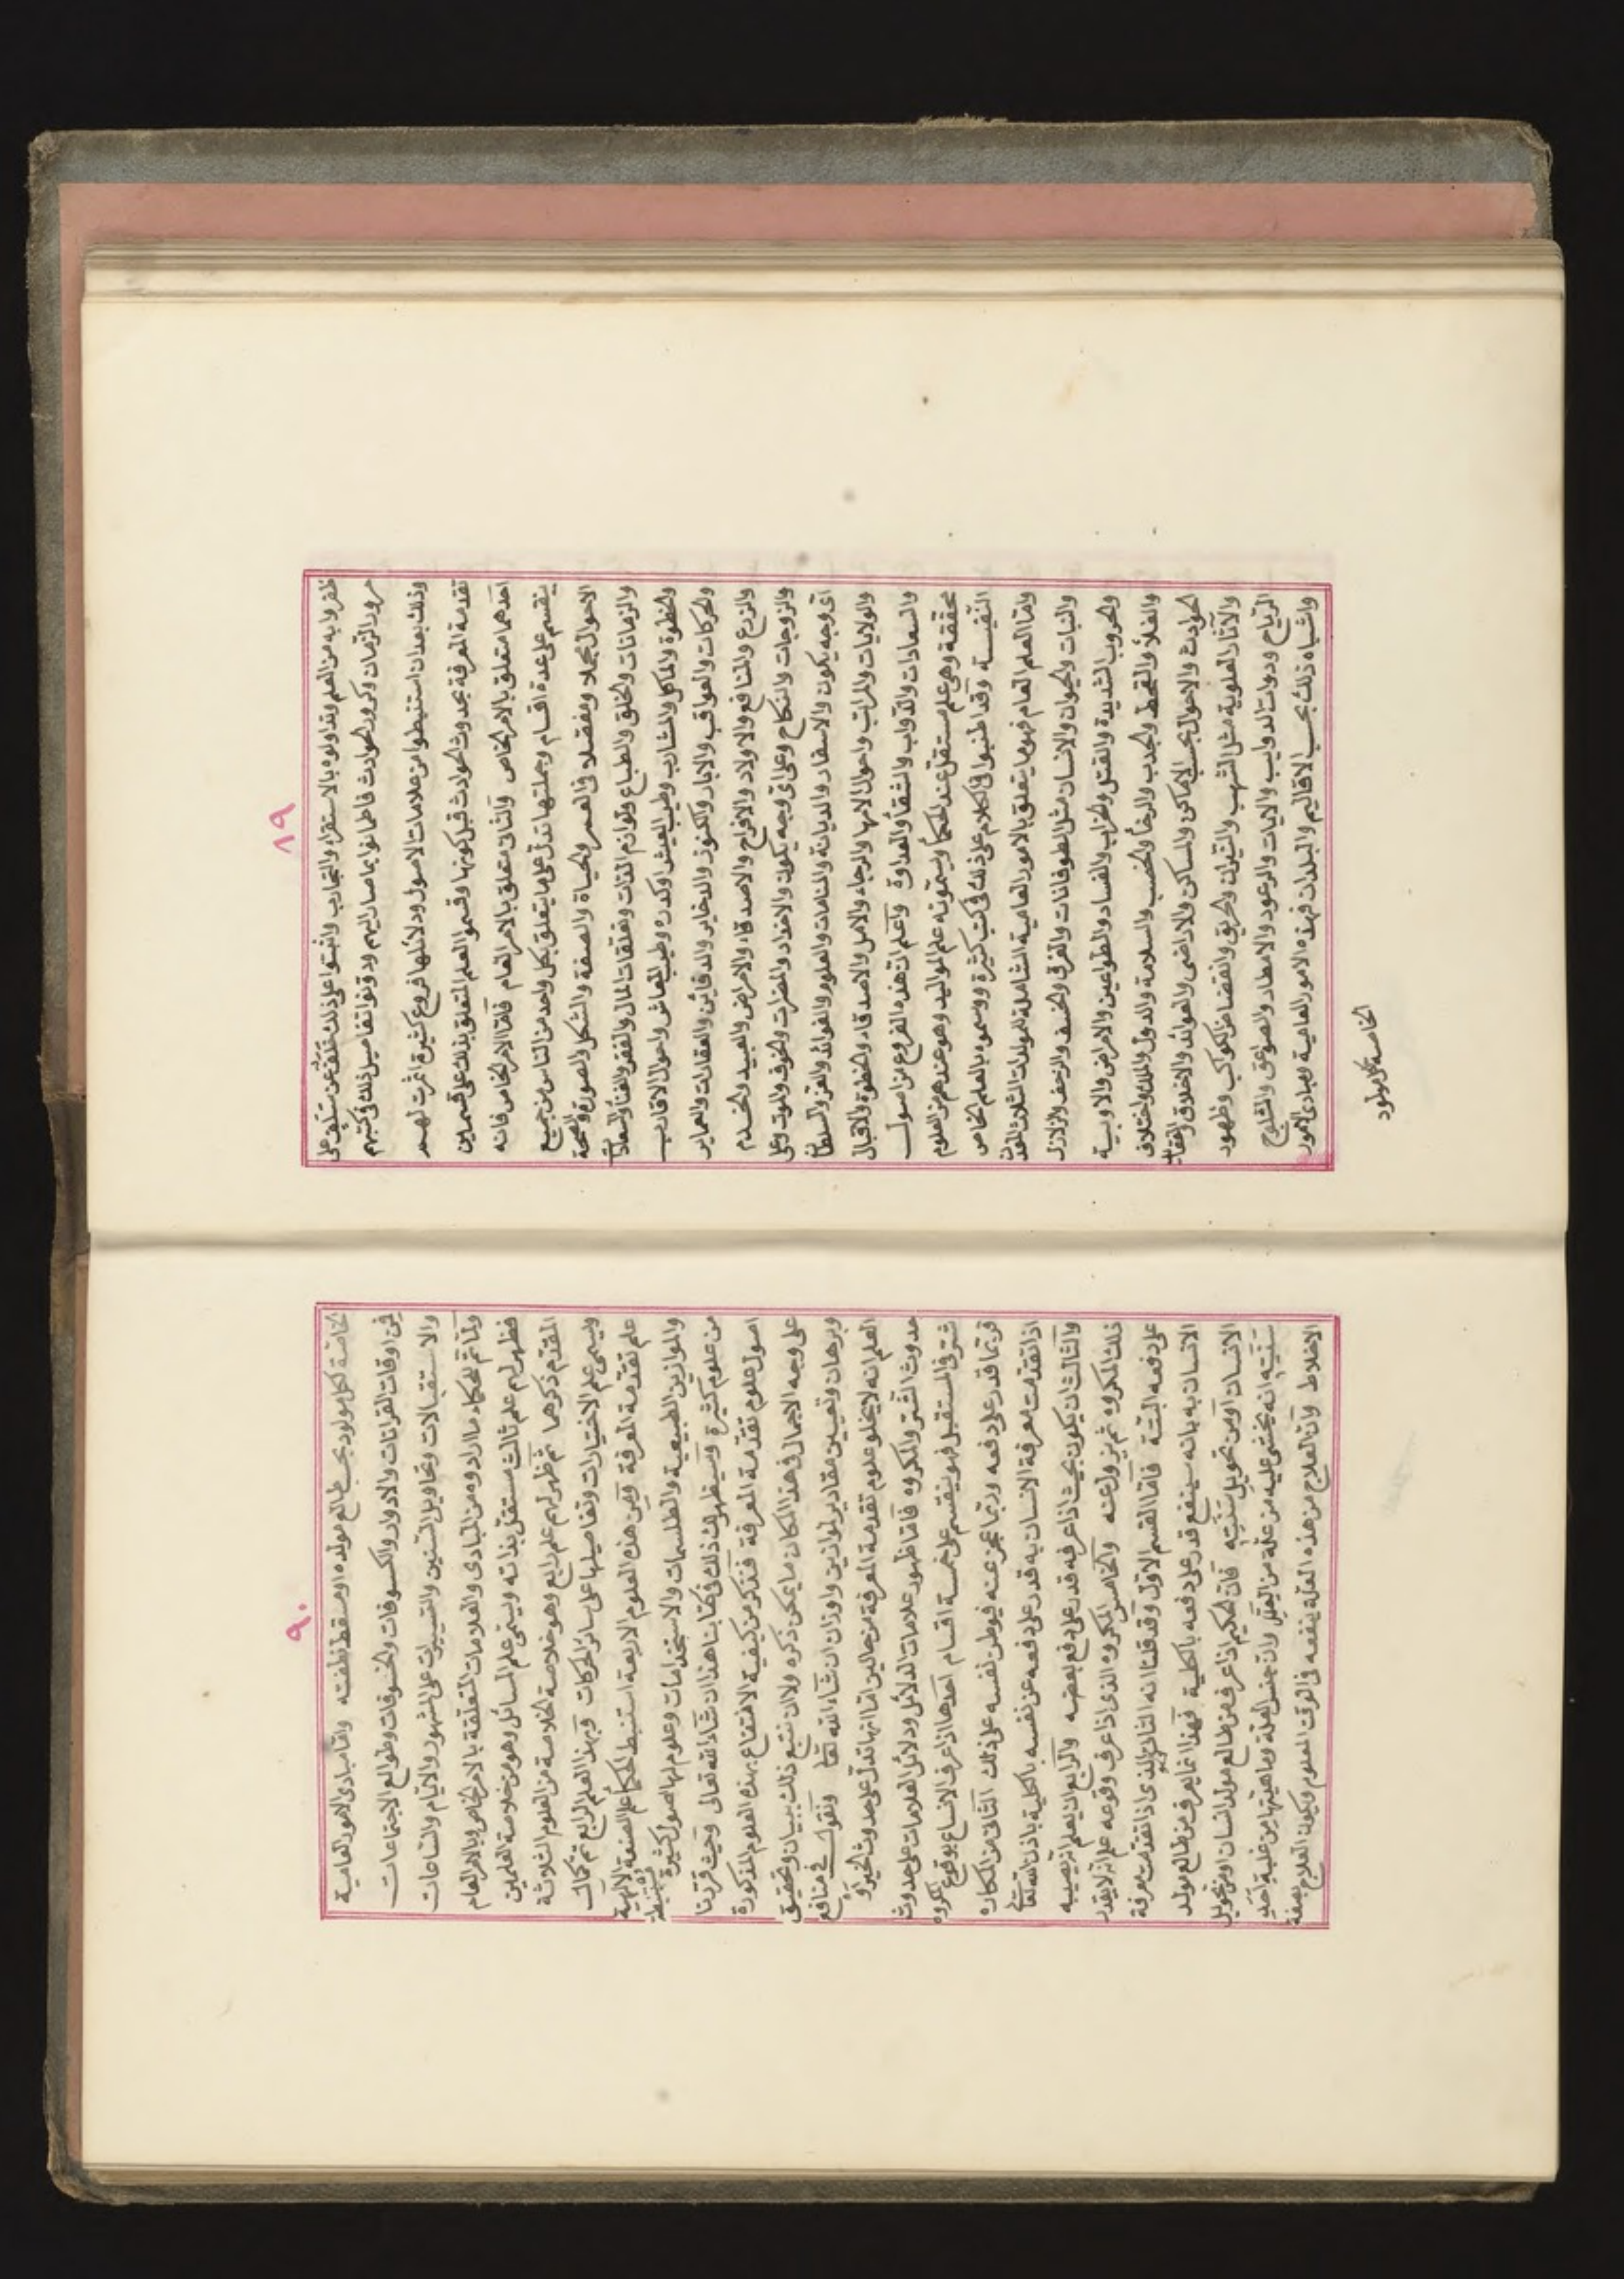 ٨٩
ظفروا به من العلم وتداولوه بالاستقراء والتجارب واثبتوا على ذلك خلف عن سلف على
مرور الزمان وكرور الحوادث فاطمانوا بما صار اليهم ودونوا تفاصيل ذلك في كتبهم
وذلك بعد ان استنبطوا من علامات الاصول ودلائلها فروع كثيرة اثمرت لهم
تقدمة المعرفة بحدوث الحوادث قبل كونها وقسموا العلم المتعلق بذلك على قسمين
احدهما متعلق بالامر الخاص والثاني متعلق بالامر العام فاما الامر الخاص فانه
ينقسم على عدة اقسام وجملتها تدل على ما يتعلق بكل واحد من الناس من جميع
الاحوال مجملا ومفصلا في العمر والحياة والصفة والشكل والصورة والصحة
والزمانات والخلق والطباع ولوازم الذات وتعلقات المال والفقر والغنا والسعادات
والحظوة والماكل والمشارب وطيب العيش او كدره وطيب المعاش واحوال الاقارب
والحركات والعواقب والابار والكنوز والدخاير والدفاين والعقارات والعماير
والزرع والمنافع والاولاد والافراح والاصدقاء والامراض والعبيد والخدم
والزوجات والنكاح وعلى اي وجه يكون والاضداد والمضرات والخوف والموت وعلى
اي وجه يكون والاسفار والديانة والمنامات والعلوم والفوائد والعز والسلطان
والولايات والمراتب واحوال الامهات والرجاء والامل والاصدقاء والحظوة والاقبال
والسعادات والدواب والشقا والعداوة واعلم ان هذه الفروع من اصول
محققة وهي علم مستقل عند الحكما ويسمونه علم المواليد وهو عندهم من العلوم
النفيسة وقد اطنبوا في الكلام على ذلك في كتب كثيرة ووسموه بالعلم الخاص
واما العلم العام فهو ما يتعلق بالامور العامية الشاملة للمولدات الثلاث المعدن
والنبات والحيوان والانسان مثل الطوفانات والغرق والخسف والرجف والزلازل
والحروب الشديدة والقتل والخراب والفساد والطواعين والامراض والاوبية
والغلا والقحط والجدب والرخا والخصب والسلامة والدول والملل واختلاف
الحوادث والاحوال بحسب الاماكن والمساكن والاراضي والعوائد والاخلاق والعقايد
والآثار العلوية مثل الشهب والنيران والحريق وانقضاض الكواكب وظهور
الرياح وذوات الذوايب والايات والرعود والامطار والصواعق والثلوج
واشباه ذلك بحسب الاقاليم والبلدان فهذه الامور العامية ومبادي الامور
الخاصة لكل مولود
٩٠
الخاصة لكل مولود بحسب طالع مولده او مسقط نطفته واما مبادي الامور العامية
فمن اوقات القرانات والادوار والكسوفات والخسوفات وطوالع الاجتماعات
والاستقبالات وتحاويل السنين والتسييرات على الشهور والايام والساعات
ولما تم للحكماء ما ارادوه من المبادي والعلامات المتعلقة بالامر الخاص وبالامر العام
فظهر لهم علم ثالث مستقل بذاته ويسمى علم المسائل وهو من خلاصة العلمين
المقدم ذكرهما ثم ظهر لهم علم رابع وهو خلاصة الخلاصة من العلوم الثلاثة
ويسمى علم الاختيارات وتفاصيلها على سائر الحركات وبهذا العلم الرابع تم كمال
علم تقدمة المعرفة ومن هذه العلوم الاربعة استنبط الحكما علم الصنعة الالهية
والموازين الطبيعية والطلسمات والاستخدامات وعلوم لها اصول كثيرة مستنبطة
من علوم كثيرة وسيظهر لك ذلك في كتابنا هذا ان شاء الله تعالى وحيث قررنا
اصول علوم تقدمة المعرفة فنذكر من كيفية الانتفاع بهذه العلوم المذكورة
على وجه الاجمال في هذا المكان ما يمكن ذكره والان نتبع ذلك ببيان وتحقيق
وبرهان وتعيين مقادير لموازين واوزان ان شاء الله تعا ونقول في منافع
العلم انه لا يخلو علوم تقدمة المعرفة من حالين اما انها تدل على حدوث الخير او
حدوث الشر والمكروه فاما ظهور علامات الدلائل ودلائل العلامات على حدوث
شر في المستقبل فهو ينقسم على خمسة اقسام احدها اذا عرف الانسان بوقوع مكروه
فربما قدر على دفعه وربما عجز عنه فيوطن نفسه على ذلك الثاني من المكاره
اذا تقدمت معرفة الانسان به قدر على دفعه عن نفسه بالكلية باذن الله تعالى
والثالث ان يكون بحيث اذا عرفه قدر على دفع بعضه والرابع ان يعلم انه يصيبه
ذلك المكروه ثم يزول عنه والخامس المكروه الذي اذا عرف وقوعه علم انه لا يقدر
على دفعه البتة فاما القسم الاول وقد قلنا انه الثاني الذي اذا تقدمت معرفة
الانسان به بانه سينفع قدر على دفعه بالكلية فهذا انما يعرف من طالع مولد
الانسان او من تحويل سنيه فان الحكيم اذا عرف من طالع مولد انسان او من تحويل
سنيه انه يخشى عليه من علة من العلل وان جنس العلة وماهيتها من غلبة احد
الاخلاط وان العلاج من هذه العلة ينفعه في الوقت المعلوم ويكون العلاج بصفة